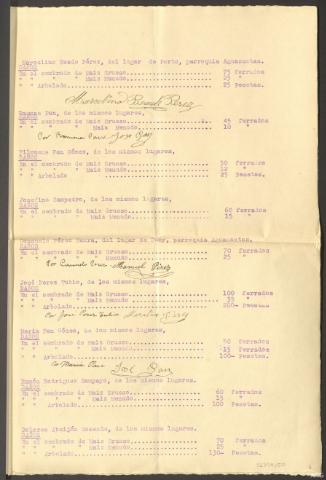 Marcelino Boado Pérez, del lugar de Porto, parroquia Aguasantas.
DAÑOS
En el sembrado de Maiz Grueso 75 Ferrados
" " " " Maiz Menudo 25 "
" " Arbolado 25 Pesetas.
Marcelino Boado Pérez
Pan, de los mismos lugares,
DAÑOS
En el sembrado de Maiz Grueso 45 Ferrados
" " " Maiz Menudo 10 "
Por Pan José
Filomena Pan Gómez, de los mismos lugares,
DAÑOS
En el sembrado de Maiz Grueso 50 Ferrados
" " " " Maiz Menudo 12 "
" " Arbolado 25 Pesetas.
Josefina Sampedro, de los mismos lugares,
DAÑOS
En el sembrado de Maiz Grueso 60 Ferrados
" " " Maiz Menudo 15 "
Pérez del lugar de parroquia Aguasantas.
DAÑOS
En el sembrado de Maiz Grueso 70 Ferrados
" " " Maiz Menudo 25 "
Por Manuel Pérez
José Perez Tubio, de los mismos lugares,
DAÑOS
En el sembrado de Maiz Grueso 100 Ferrados
" " " " Maiz Menudo 35 "
" " Arbolado 260- Pesetas.
Por José
Maria Pan Gómez, de los mismos lugares,
DAÑOS
En el sembrado de Maiz Grueso 50 Ferrados
" " " Maiz Menudo 15 Ferrados
Arbolado 100- Pesetas.
Por Maria Pan José
Ramón Rodriguez Sampayo, de los mismos lugares.
DAÑOS
En el sembrado de Maiz Grueso 60 Ferrados
" " " " Maiz Menudo 15 "
" " Arbolado 100 Pesetas.
Dolores de los mismos lugares.
DAÑOS
En el sembrado de Maiz Grueso 70 Ferrados
" " " " Maiz Menudo 25 "
" " Arbolado 130- Pesetas.